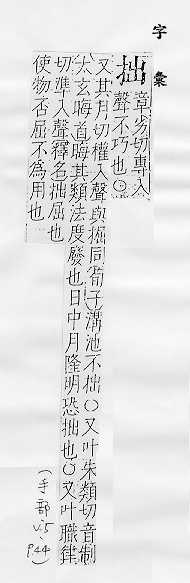 字彙
拙
章劣切專入
聲不巧也〇
又其月切權入聲與掘同荀子溝池不拙〇又叶朱類切音制
太玄晦道晦其類法度廢也日中月隆明恐拙也〇又叶職律
切準入聲釋名拙屈也
使物否屈不為用也
(手部 v.5、p.44)